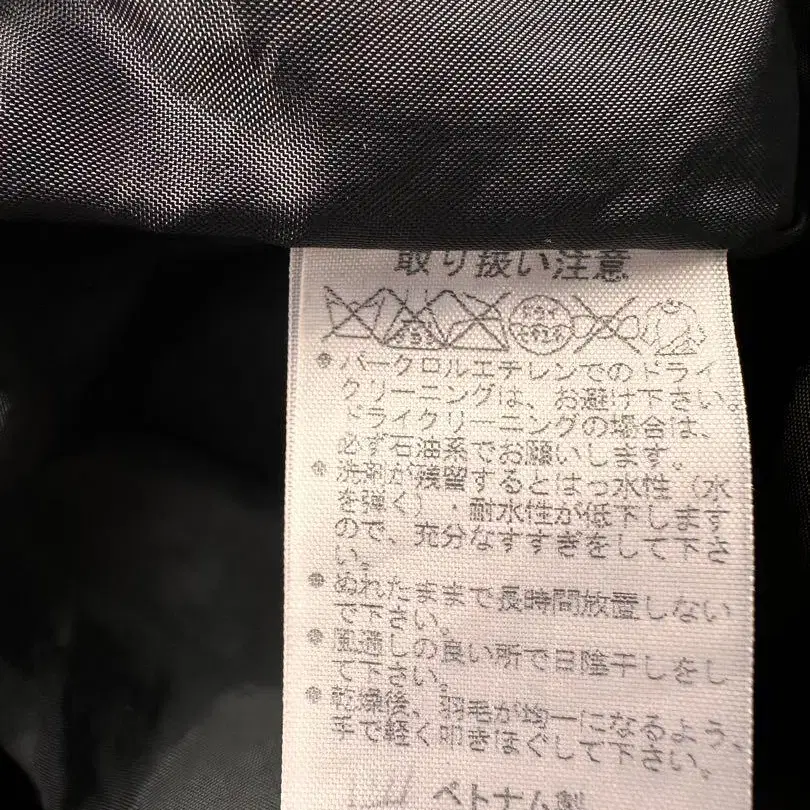 取り扱い注意
ドライ
セキユ系
●パークロルエチレンでのドライ
クリーニングは、お避け下さい。
ドライクリーニングの場合は、
必ず石油系でお願いします。
●洗剤が残留するとはっ水性（水
を弾く）・耐水性が低下します
ので、充分なすすぎをして下さ
い。
●ぬれたままで長時間放置しない
で下さい。
●風通しの良い所で日陰干しをし
て下さい。
●乾燥後、羽毛が均一になるよう、
手で軽く叩きほぐして下さい。
ベトナム製